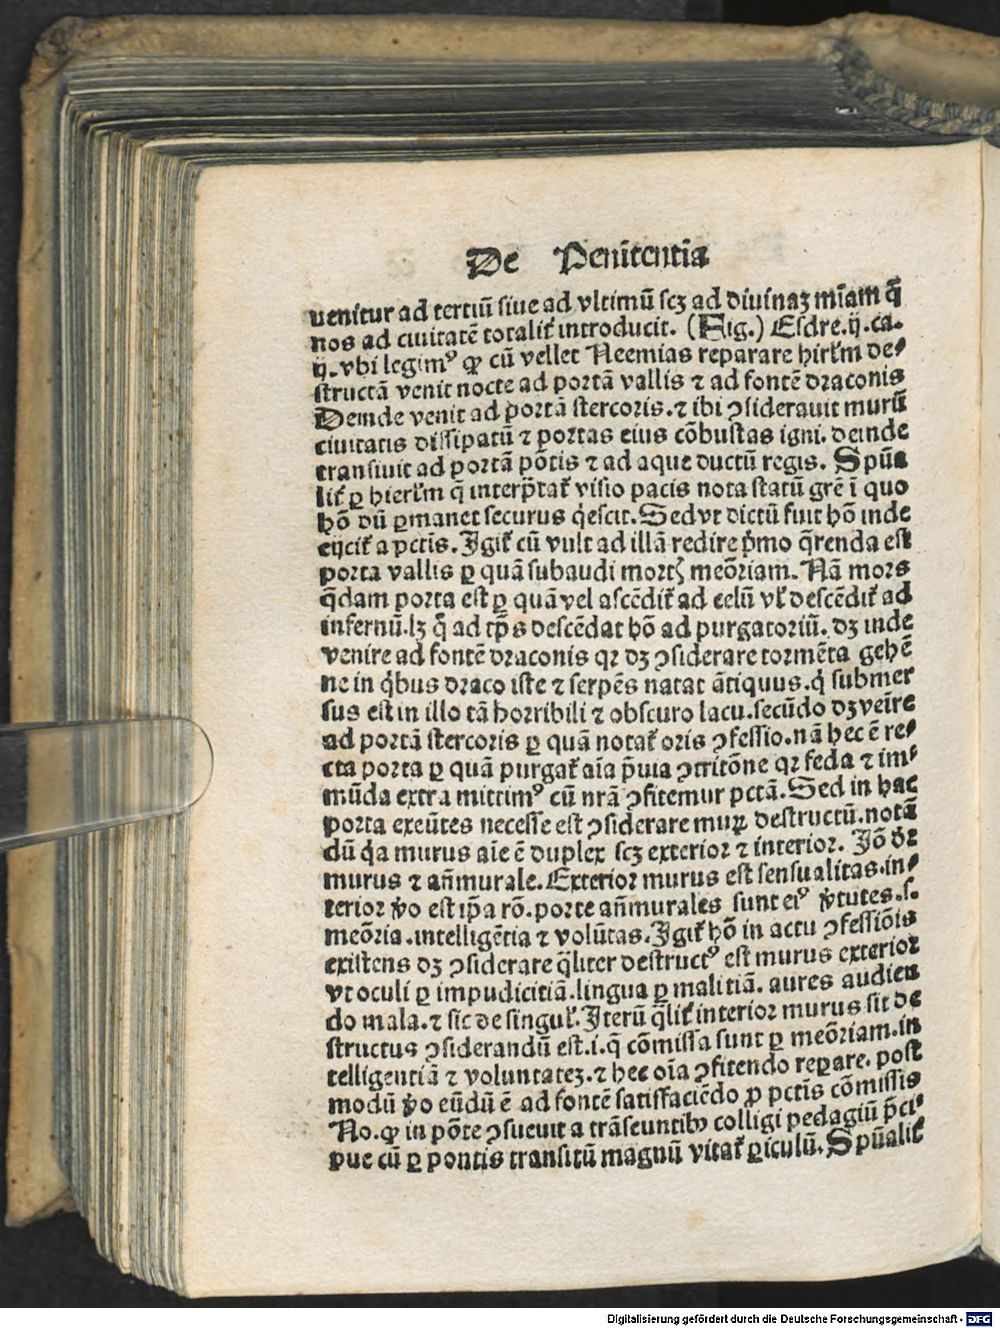 De Penitentia
uenitur ad tertiū siue ad vltimū scꝫ ad diuinaꝫ mīam q̄
nos ad ciuitatē totalit̄ introducit. (Fig.) Esdre.ij.ca.
ij. vbi legimꝰ ꝙ cū vellet Neemias reparare hirl̄m de⸗
structā venit nocte ad portā vallis ⁊ ad fontē draconis
Deinde venit ad portā stercoris.⁊ ibi ꝯsiderauit murū
ciuitatis dissipatū ⁊ portas eius cōbustas igni. deinde
transiuit ad portā pōtis ⁊ ad aque ductū regis. Spūa
lit̄ ꝑ hierl̄m q̄ interp̄tat̄ visio pacis nota statū grē ī quo
hō dū ꝑmanet securus q̄escit. Sed vt dictū fuit hō inde
eijcit̄ a pctīs. Igit̄ cū vult ad illā redire p̄mo q̄renda est
porta vallis ꝑ quā subaudi mortꝭ meōriam. Nā mors
q̄dam porta est ꝑ quā vel ascēdit̄ ad celū vl̄ descēdit̄ ad
infernū.lꝫ q̄ ad tp̄s descēdat hō ad purgatoriū. dꝫ inde
venire ad fontē draconis qꝛ dꝫ ꝯsiderare tormēta gehē
ne in q̄bus draco iste ⁊ serpēs natat ātiquus.q̄ submer
sus est in illo tā horribili ⁊ obscuro lacu.secūdo dꝫ veīre
ad portā stercoris ꝑ quā notat̄ oris ꝯfessio.nā hec ē re⸗
cta porta ꝑ quā purgat̄ aīa p̄uia ꝯtritōne qꝛ feda ⁊ im⸗
mūda extra mittimꝰ cū nrā ꝯfitemur pctā. Sed in hac
porta exeūtes necesse est ꝯsiderare muꝝ destructū.notā
dū q̄a murus aīe ē duplex scꝫ exterior ⁊ interior. Iō dr̄
murus ⁊ an̄murale. Exterior murus est sensualitas.in⸗
terior ṽo est ip̄a rō. porte an̄murales sunt eiꝰ ṽtutes.s.
meōria.intelligētia ⁊ volūtas. Igit̄ hō in actu ꝯfessiōis
existens dꝫ ꝯsiderare q̄liter destructꝰ est murus exterior
vt oculi ꝑ impudicitiā.lingua ꝑ malitiā. aures audien
do mala.⁊ sic de singul̄. Iterū q̄lit̄ interior murus sit de
structus ꝯsiderandū est.i.q̄ cōmissa sunt ꝑ meōriam.in
telligentiā ⁊ voluntateꝫ.⁊ hec oīa ꝯfitendo reꝑare. post
modū ṽo eūdū ē ad fontē satisfaciēdo ꝓ pctīs cōmissis
No. ꝙ in pōte ꝯsueuit a trāseuntibꝰ colligi pedagiū p̄ci⸗
pue cū ꝑ pontis transitū magnū vitat̄ ꝑiculū. Spūalit̄
Digitalisierung gefördert durch die Deutsche Forschungsgemeinschaft - DFG